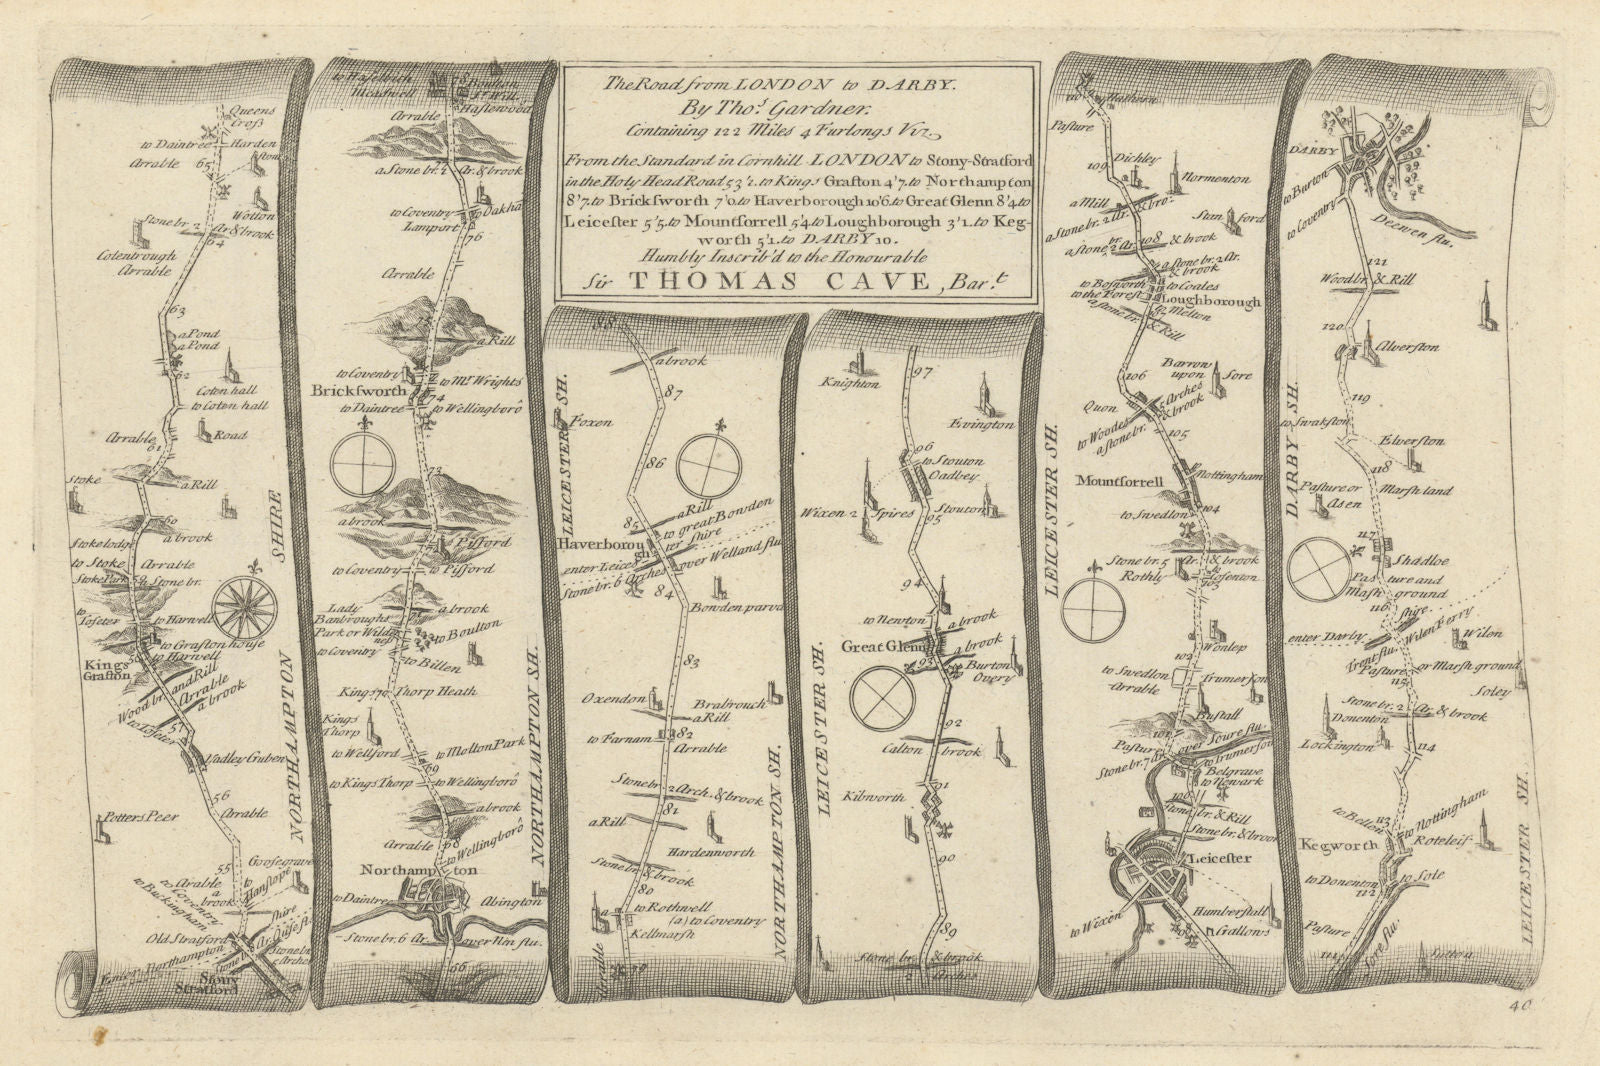 The Road from LONDON to DARBY.
By Thoˢ. Gardner.
Containing 122 Miles 4 Furlongs Viz.
From the Standard in Cornhill LONDON to Stony-Stratford
in the Holy Head Road 53'2. to Kings Grafton 4'7. to Northampton
8'7. to Bricksworth 7'0. to Haverborough 10'6. to Great Glenn 8'4. to
Leicester 5'5. to Mountsorrell 5'4 to Loughborough 3'1. to Keg-
worth 5'1. to DARBY 10.
Humbly Inscrib'd to the Honourable
Sir THOMAS CAVE, Bar.ᵗ
Queens
Cross
to Daintree
Harden
ston
Arrable
65
Wotton
Stone br. 2 Ar & brook
64
Cotentrough
Arrable
63
a Pond
a Pond
62
Coton hall
to Coton hall
Road
Arrable
61
Stoke
a Rill
60
a brook
Stoke lodge
to Stoke
Arrable
Stoke Park
59
Stone br.
to Toseter
to Harwell
to Grafton house
to Harwell
58
Kings
Grafton
Wood br. and Rill
Arrable
a brook
to Toseter
57
Yadley Guben
56
Arrable
Potters Peer
55
Gosegrave
to Hanslope
to Arrable
to Coventry
a brook
to Buckingham
shire
Old Stratford
Enter Northampton
Stony
Stratford
NORTHAMPTON SHIRE
to Haselbich
Meadwell
78
Haslewood
Arrable
a Stone br. 2 Ar. & brook
to Coventry
to Oakha
Lamport
76
Arrable
75
a Rill
to Coventry
to Mr. Wrights
Bricksworth
74
to Daintree
to Wellingborô
73
a brook
Pisford
to Coventry
to Pisford
72
Lady
Banbroughs
Park or Wilder
ness
a brook
to Boulton
to Coventry
to Billen
Kings 70 Thorp Heath
Kings
Thorp
to Wellford
to Molton Park
69
to Kings Thorp
to Wellingborô
a brook
Arrable
68
to Wellingborô
Northampton
to Daintree
Abington
Stone br. 6 Ar. over Nin flu.
66
NORTHAMPTON SH.
88
a brook
87
LEICESTER SH.
Foxen
86
a Rill
85
to great Bowden
Haverborough
enter Leicester shire
Stone br. 6 Arches over Welland flu
84
Bowden parva
83
Oxendon
Brabrouch
a Rill
to Farnam
82
Arrable
Stone br. 2 Arch. & brook
81
a Rill
Hardenworth
Stone br. & brook
80
to Rothwell
(a) to Coventry
Kellmarsh
Arrable
79
NORTHAMPTON SH.
97
Knighton
Evington
96
to Stouton
Oadbey
Wixen 2 Spires
95
Stouton
94
to Newton
a brook
Great Glenn
a brook
93
Burton
Overy
LEICESTER SH.
92
Calton
brook
91
Kibworth
90
89
Stone br. & brook
Arches
to Hathern
Pasture
109
Dichley
Normenton
a Mill
a Stone br. 2 Ar. & bro.
Stan ford
a Stone br. 2 Ar. 108 & brook
a Stone br. 2 Ar.
& brook
to Bosworth
to Coales
to the Forest
Loughborough
to Melton
a Stone br. & Rill
106
Barrow
upon Sore
Quon
5 Arches
& brook
to Woodes
a Stone br.
105
LEICESTER SH.
Mountsorrell
Nottingham
to Swedlon
104
Stone br. 5 Ar. & brook
Rothly
to Cosenton
103
Wonlep
102
to Swedlon
Arrable
Trumerson
Bustall
101
Pasture
over Soure flu.
Stone br. 7 Ar.
to Trumerson
Belgrave
to Newark
100
Stone br. & Rill
Stone br. & brook
Leicester
to Wixen
Humberstall
Gallows
DARBY
to Burton
to Coventry
Deewen flu.
121
Wood br. & Rill
120
Alverston
119
to Swakston
DARBY SH.
Elverston
118
Pasture or
Asen
Marsh land
117
Shadloe
Pasture and
Mash ground
116
enter Darby shire
Wilen Ferry
Wilen
Trent flu.
Pasture or Marsh ground
115
Soley
Stone br. 2 Ar. & brook
Donenton
Lockington
114
to Bellon
to Nottingham
113
Kegworth
Roteleif
to Donenton
to Sole
112
Pasture
111
Sore flu.
Sutton
LEICESTER SH.
40